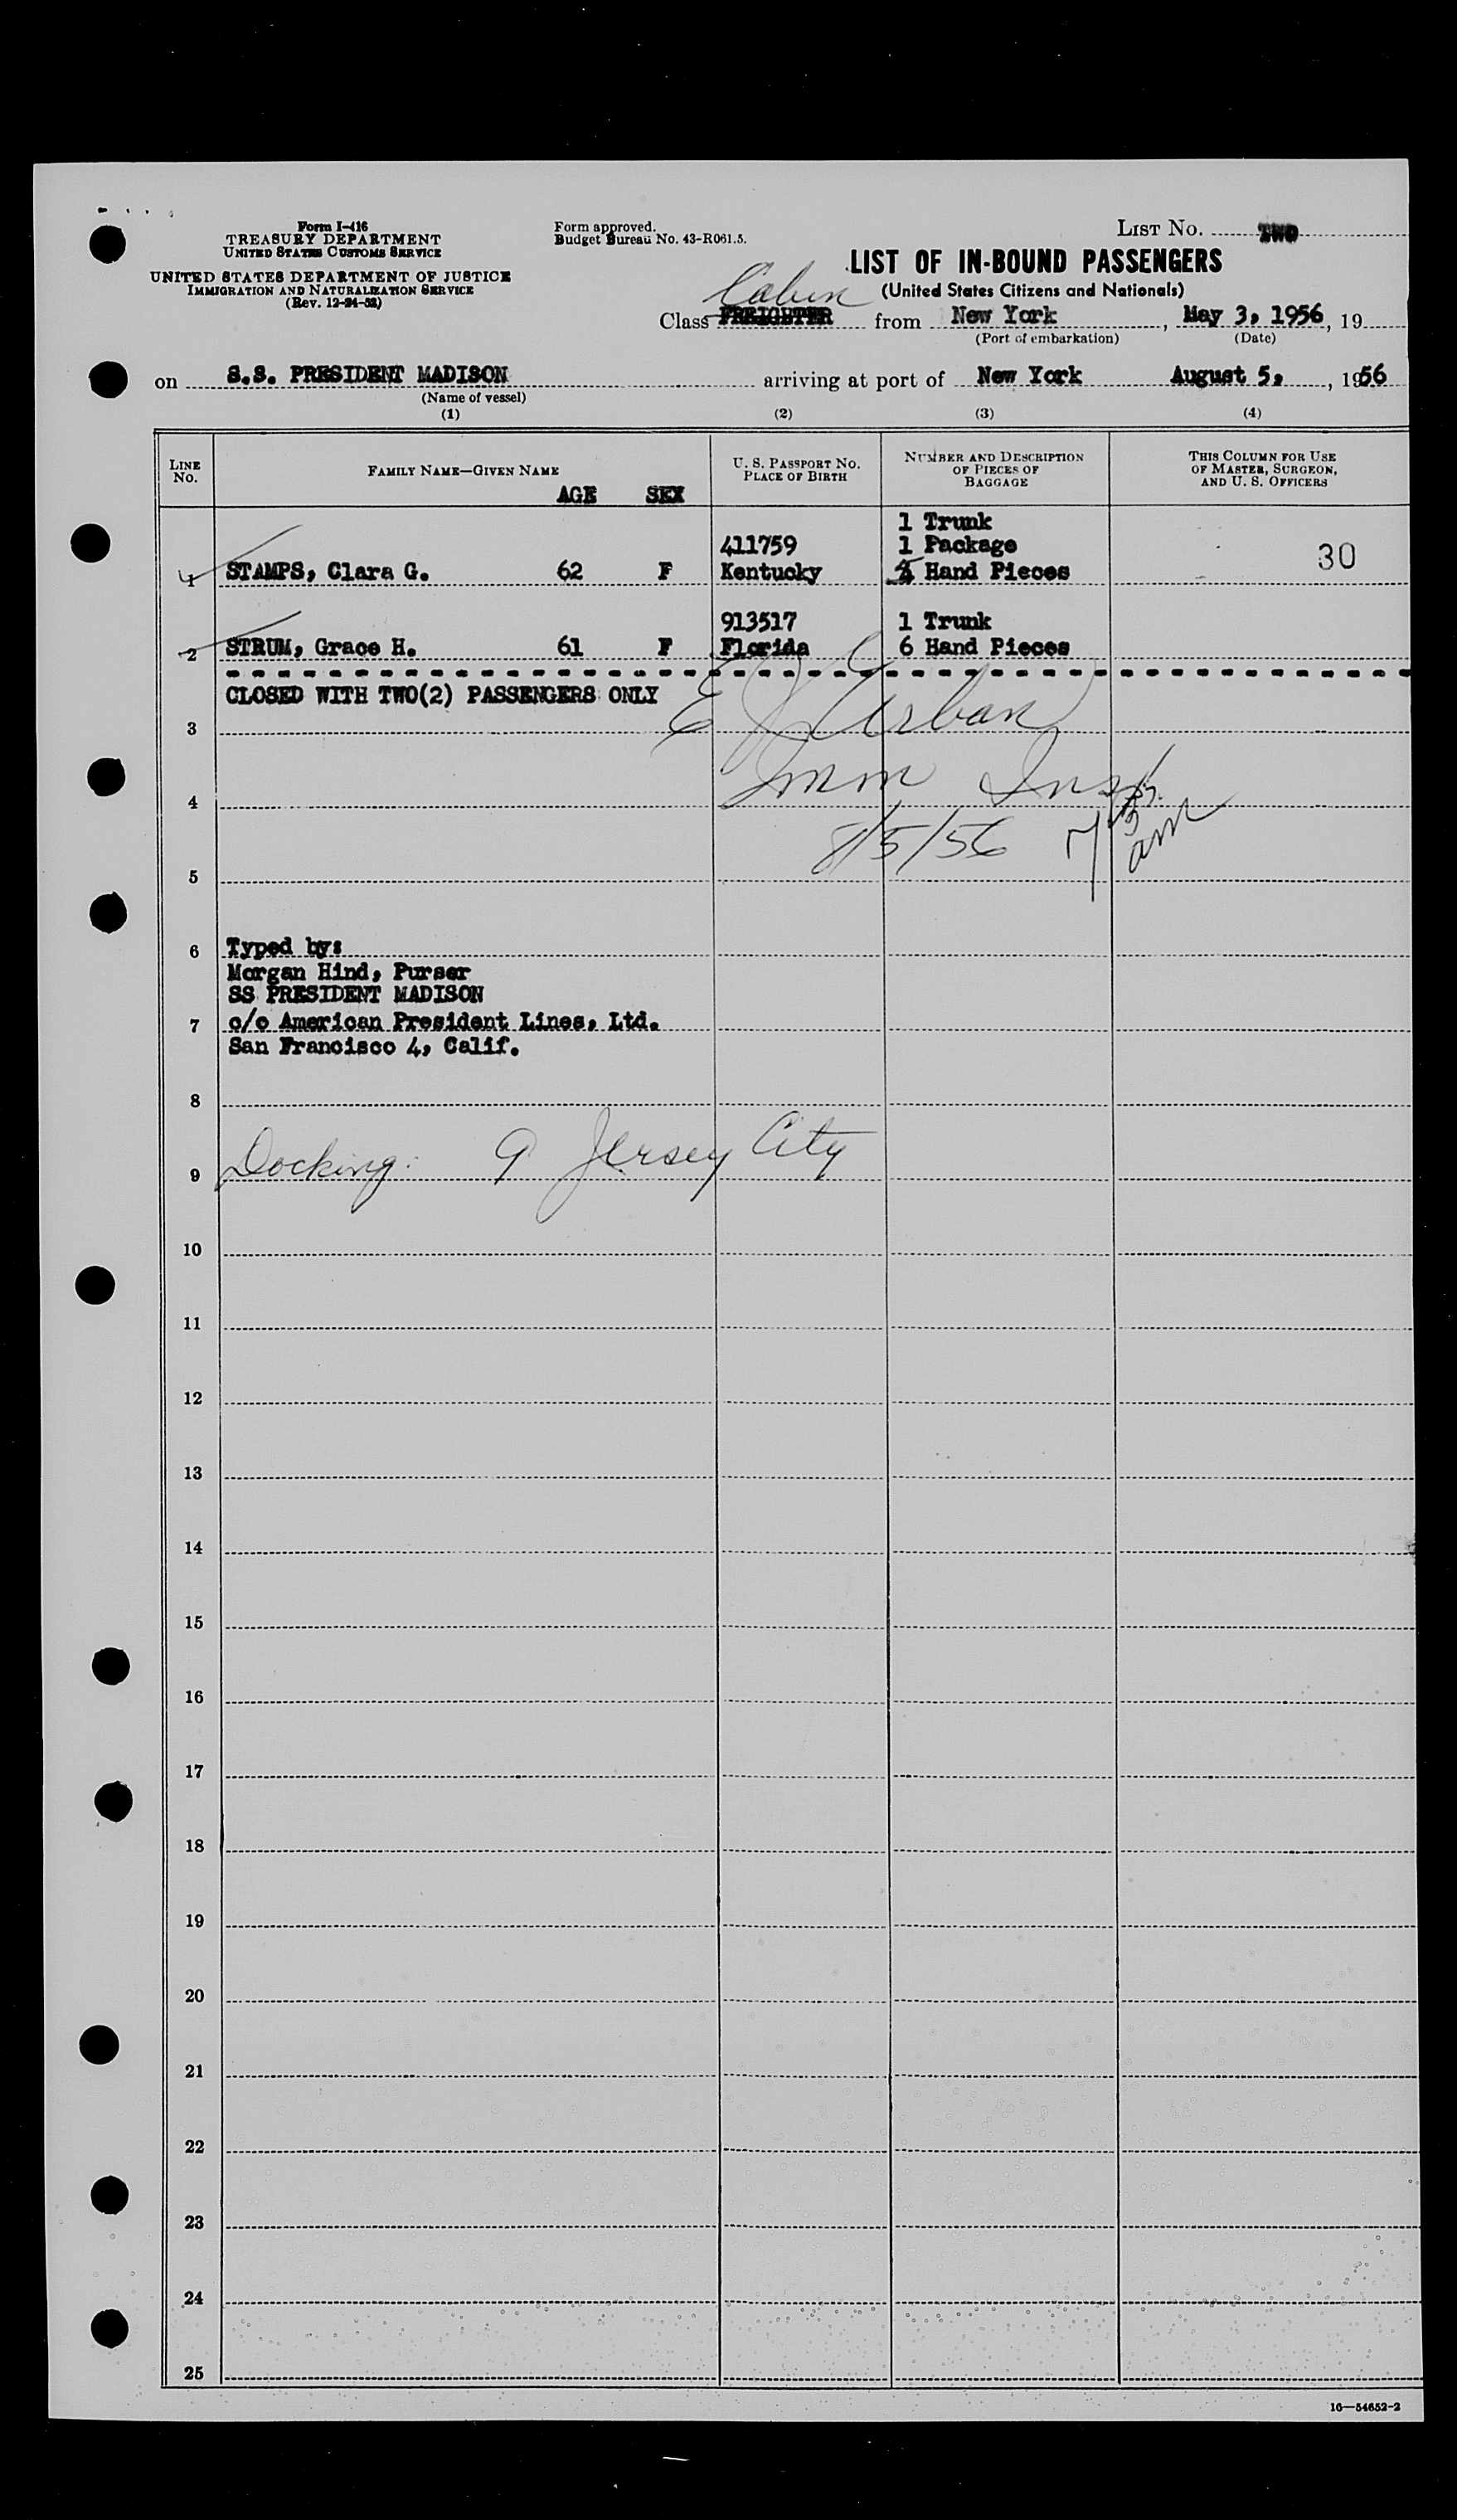 Form I-416
TREASURY DEPARTMENT
UNITED STATES CUSTOMS SERVICE
UNITED STATES DEPARTMENT OF JUSTICE
IMMIGRATION AND NATURALIZATION SERVICE
(Rev. 12-24-52)
Form approved.
Budget Bureau No. 43-R061.5.
LIST No. TWO
LIST OF IN-BOUND PASSENGERS
(United States Citizens and Nationals)
Cabin
Class FREIGHTER from New York, May 3, 1956, 19
(Port of embarkation) (Date)
on S.S. PRESIDENT MADISON arriving at port of New York August 5, 1956
(Name of vessel)
(1) (2) (3) (4)
LINE No. FAMILY NAME—GIVEN NAME AGE SEX U. S. PASSPORT NO. PLACE OF BIRTH NUMBER AND DESCRIPTION OF PIECES OF BAGGAGE THIS COLUMN FOR USE OF MASTER, SURGEON, AND U. S. OFFICERS
1 Trunk
411759 1 Package 30
1 STAMPS, Clara G. 62 F Kentucky Hand Pieces
913517 1 Trunk
2 STRUM, Grace H. 61 F Florida 6 Hand Pieces
CLOSED WITH TWO(2) PASSENGERS ONLY
3 E J Urban
4 Imm Insp.
5 8/5/56 am
6 Typed by:
Morgan Hind, Purser
SS PRESIDENT MADISON
7 c/o American President Lines, Ltd.
San Francisco 4, Calif.
8
9 Docking: 9 Jersey City
10
11
12
13
14
15
16
17
18
19
20
21
22
23
24
25
16—54652-2